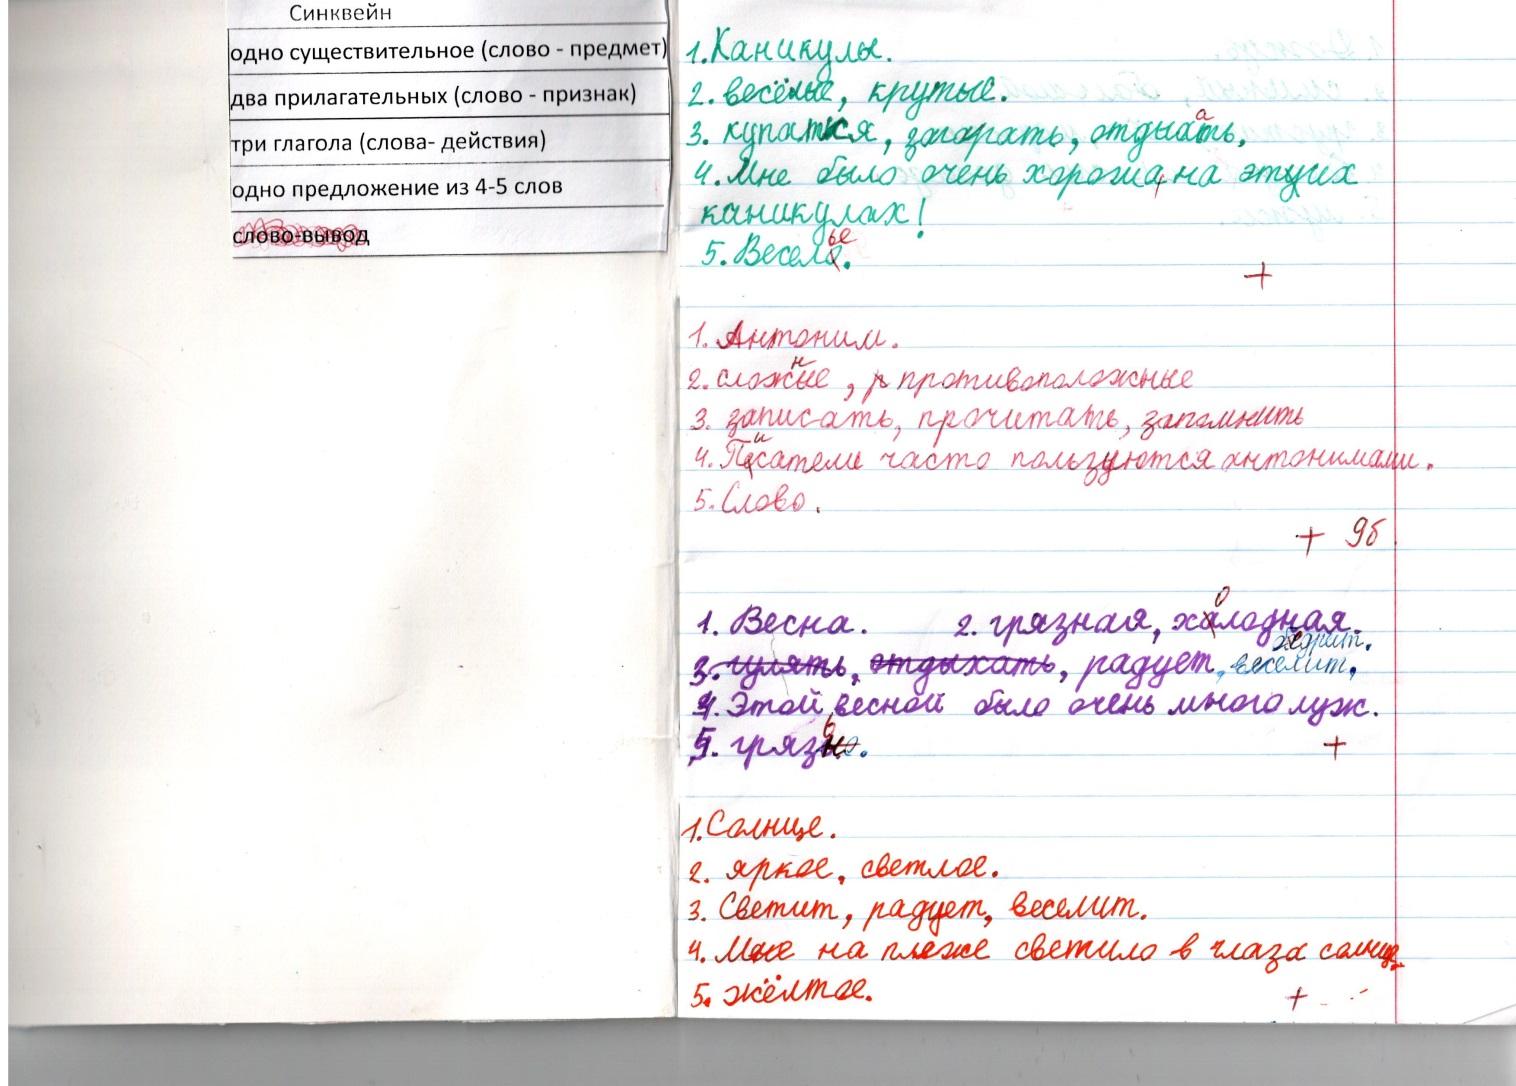 Синквейн
одно существительное (слово - предмет)
два прилагательных (слово - признак)
три глагола (слова- действия)
одно предложение из 4-5 слов
слово-вывод
1. Каникулы.
2. весёлые, крутые.
3. купатся, загорать, отдыхать,
4. Мне было очень хороша на этих
каникулах!
5. Веселье.
+
1. Антоним.
2. сложные, противоположные
3. записать, прочитать, запомнить
4. Писатели часто пользуются антонимами.
5. Слово.
+ 9б
1. Весна. 2. грязная, холодная.
3. гулять, отдыхать, радует, веселит,
4. Этой весной было очень много луж.
5. грязь.
+
1. Солнце.
2. яркое, светлое.
3. Светит, радует, веселит.
4. Мне на пляже светило в глаза солнце.
5. жёлтое.
+